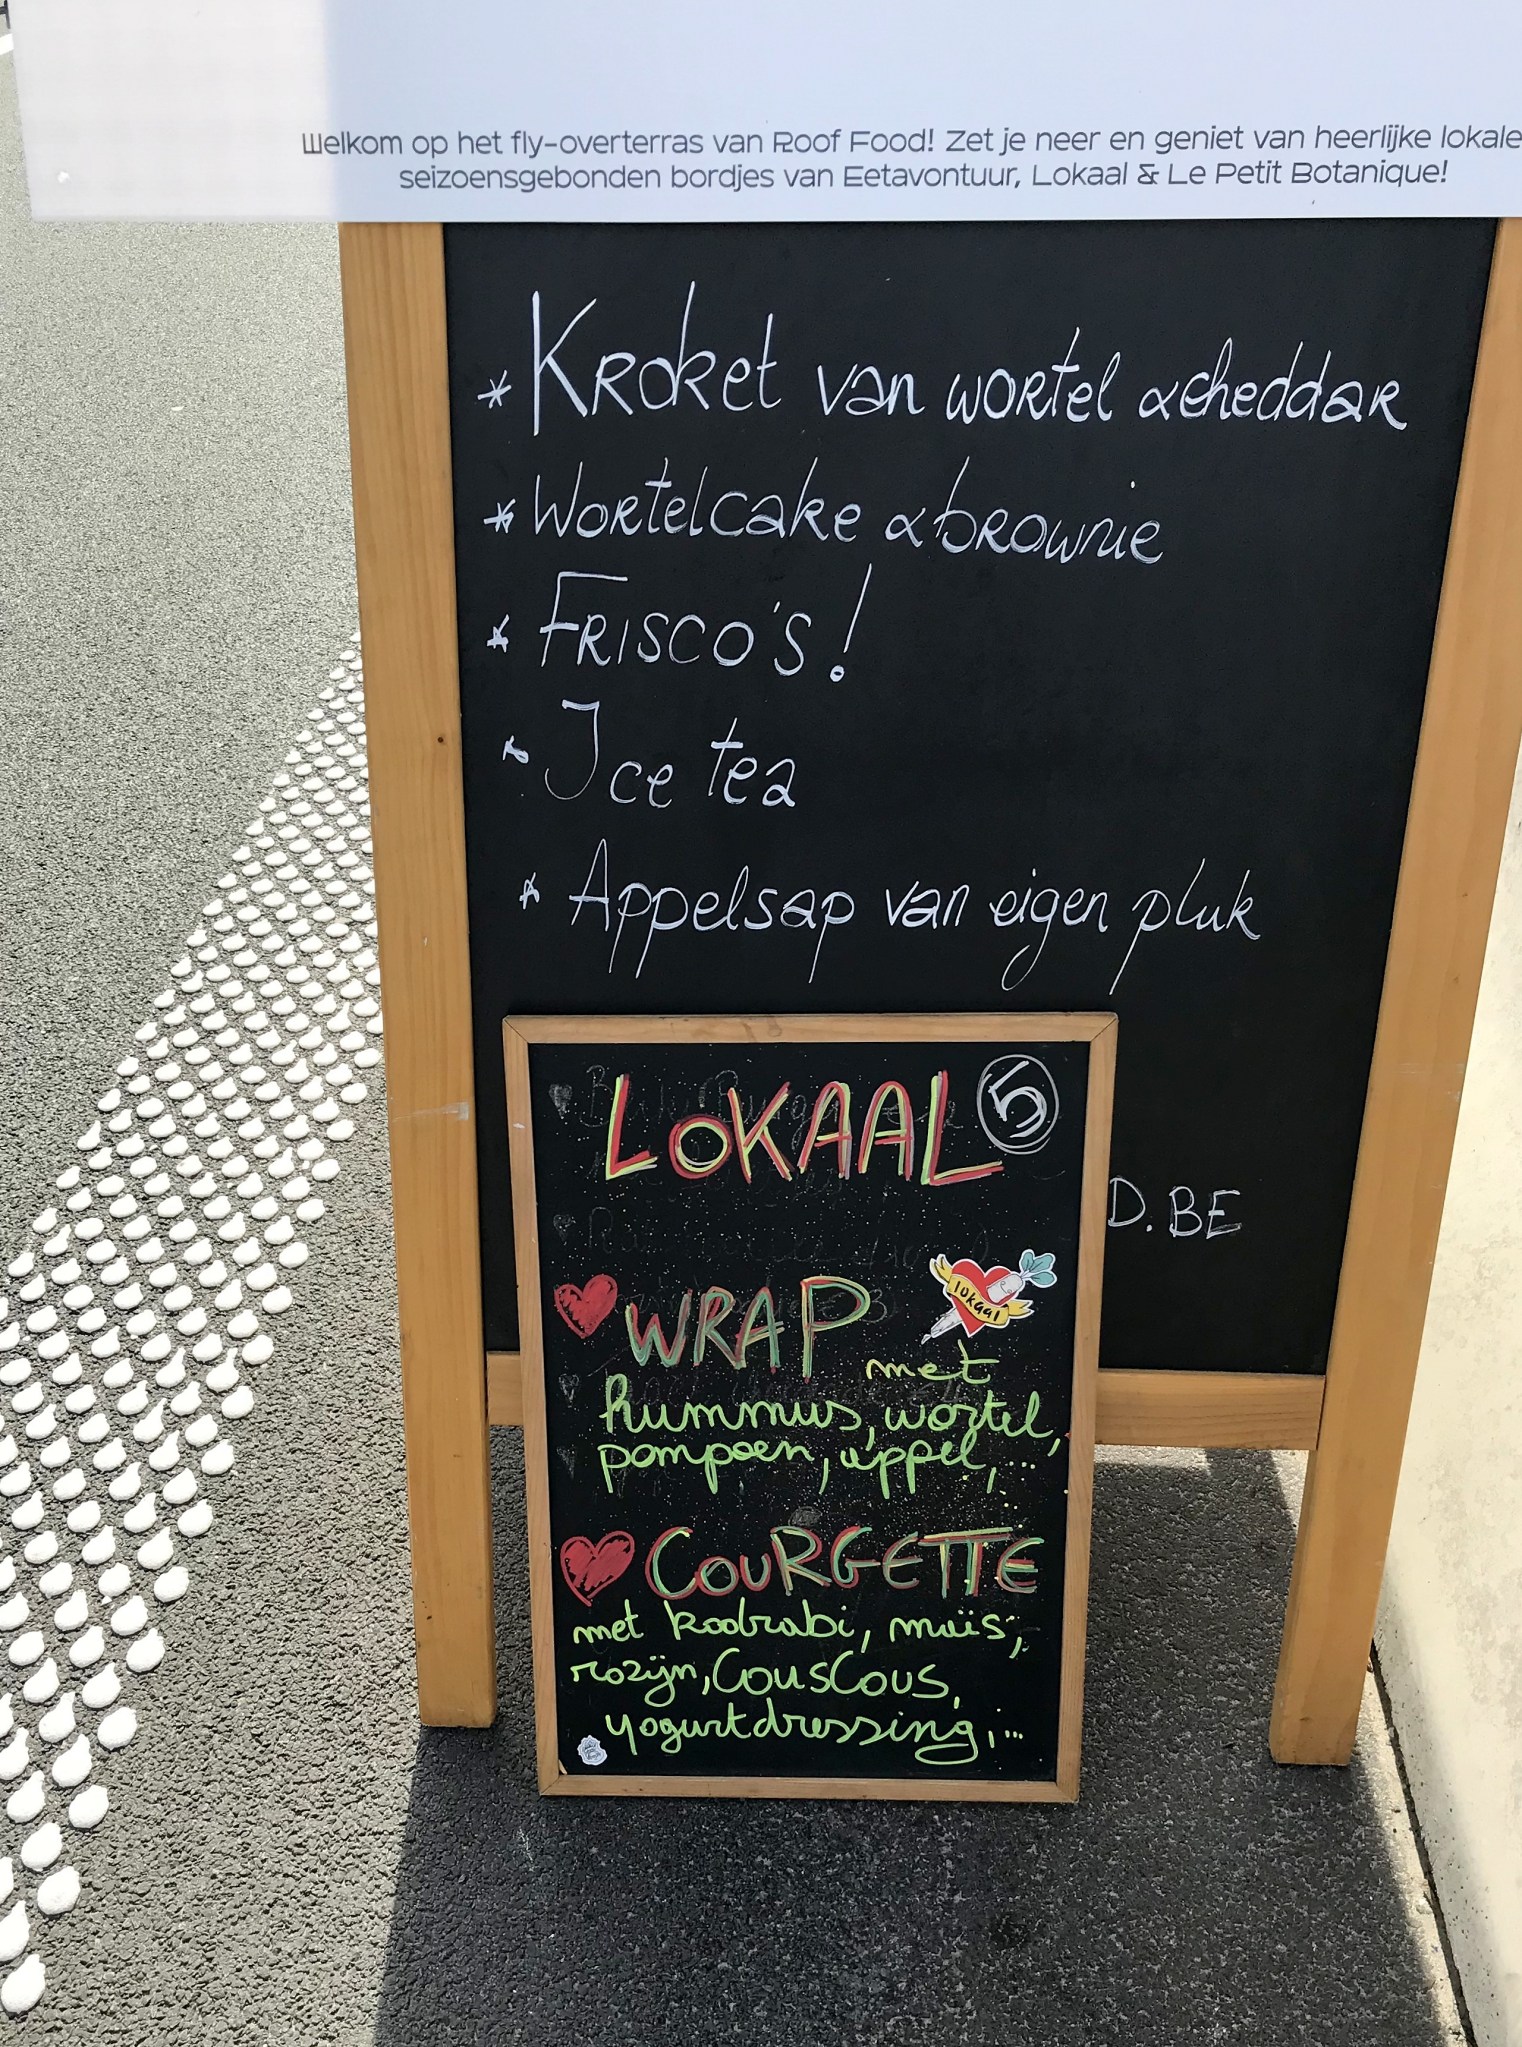 Welkom op het fly-overterras van Roof Food! Zet je neer en geniet van heerlijke lokale
seizoensgebonden bordjes van Eetavontuur, Lokaal & Le Petit Botanique!
* Kroket van wortel & cheddar
* Wortelcake & brownie
* Frisco's!
* Ice tea
* Appelsap van eigen pluk
LOKAAL 5
D.BE
lokaal
WRAP
met
hummus, wortel,
pompoen, appel, ...
COURGETTE
met koolrabi, maïs,
rozijn, couscous,
yogurtdressing, ...